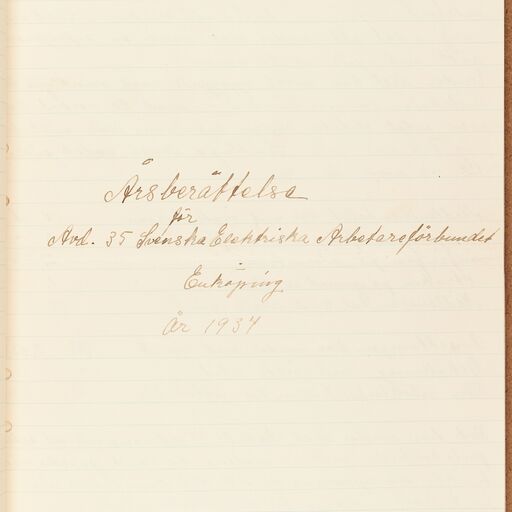 Årsberättelse
för
Avd. 35 Svenska Elektriska Arbetareförbundet
Enköping
År 1934